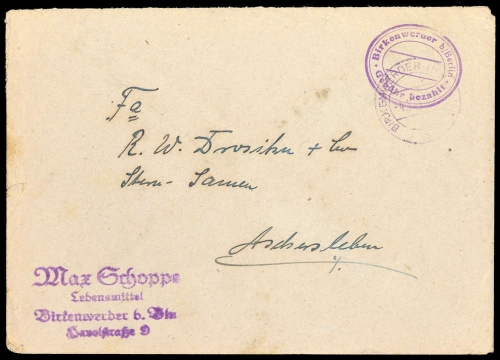 Birkenwerder b/Berlin
Gebühr bezahlt
Fa
R. W. Drosihn + Co
Stern-Samen
Aschersleben
Max Schopps
Lebensmittel
Birkenwerder b. Bln
Havelstraße 9